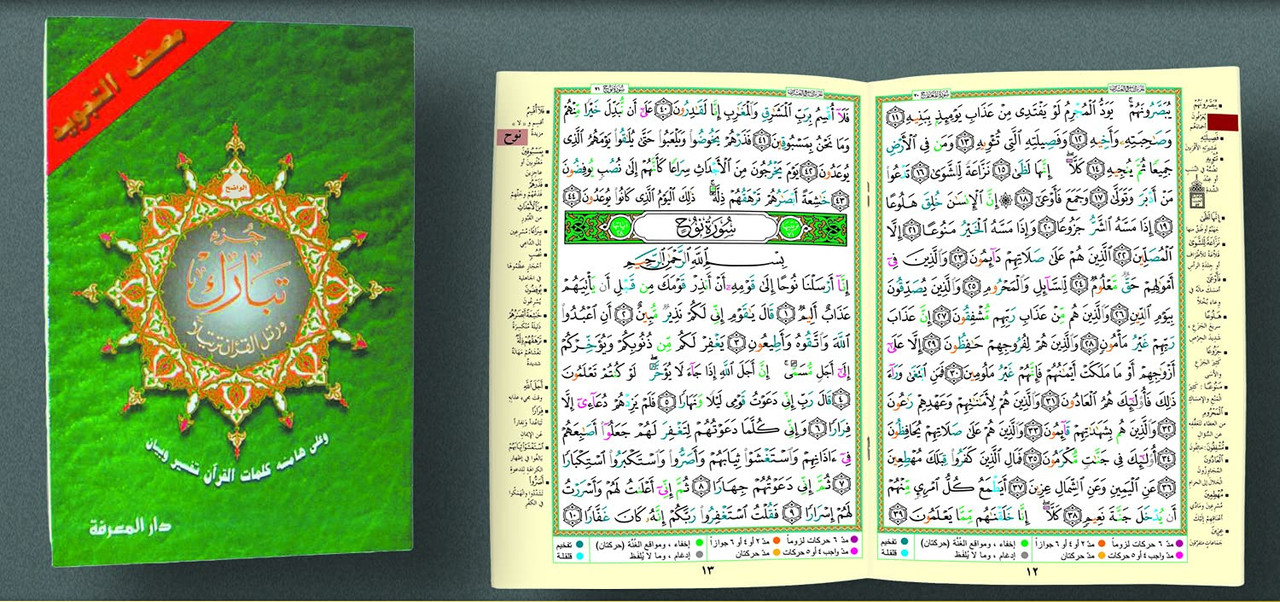 مصحف التجويد
الواضح
جزء
تبارك
ورتل القرآن ترتيلاً
وعلى هامشه كلمات القرآن تفسير وبيان
دار المعرفة
يُبَصَّرُونَهُمْ ۚ يَوَدُّ الْمُجْرِمُ لَوْ يَفْتَدِى مِنْ عَذَابِ يَوْمِئِذٍۭ بِبَنِيهِ ١١
وَصَٰحِبَتِهِۦ وَأَخِيهِ ١٢ وَفَصِيلَتِهِ الَّتِى تُـْٔوِيهِ ١٣ وَمَن فِى الْأَرْضِ
جَمِيعًا ثُمَّ يُنجِيهِ ١٤ كَلَّآ ۖ إِنَّهَا لَظَىٰ ١٥ نَزَّاعَةً لِّلشَّوَىٰ ١٦ تَدْعُوا۟
مَنْ أَدْبَرَ وَتَوَلَّىٰ ١٧ وَجَمَعَ فَأَوْعَىٰٓ ١٨ ۞ إِنَّ الْإِنسَٰنَ خُلِقَ هَلُوعًا
١٩ إِذَا مَسَّهُ الشَّرُّ جَزُوعًا ٢٠ وَإِذَا مَسَّهُ الْخَيْرُ مَنُوعًا ٢١ إِلَّا
الْمُصَلِّينَ ٢٢ الَّذِينَ هُمْ عَلَىٰ صَلَاتِهِمْ دَآئِمُونَ ٢٣ وَالَّذِينَ فِىٓ
أَمْوَٰلِهِمْ حَقٌّ مَّعْلُومٌ ٢٤ لِّلسَّآئِلِ وَالْمَحْرُومِ ٢٥ وَالَّذِينَ يُصَدِّقُونَ
بِيَوْمِ الدِّينِ ٢٦ وَالَّذِينَ هُم مِّنْ عَذَابِ رَبِّهِم مُّشْفِقُونَ ٢٧ إِنَّ عَذَابَ
رَبِّهِمْ غَيْرُ مَأْمُونٍ ٢٨ وَالَّذِينَ هُمْ لِفُرُوجِهِمْ حَٰفِظُونَ ٢٩ إِلَّا عَلَىٰٓ
أَزْوَٰجِهِمْ أَوْ مَا مَلَكَتْ أَيْمَٰنُهُمْ فَإِنَّهُمْ غَيْرُ مَلُومِينَ ٣٠ فَمَنِ ابْتَغَىٰ وَرَآءَ
ذَٰلِكَ فَأُو۟لَٰٓئِكَ هُمُ الْعَادُونَ ٣١ وَالَّذِينَ هُمْ لِأَمَٰنَٰتِهِمْ وَعَهْدِهِمْ رَٰعُونَ
٣٢ وَالَّذِينَ هُم بِشَهَٰدَٰتِهِمْ قَآئِمُونَ ٣٣ وَالَّذِينَ هُمْ عَلَىٰ صَلَاتِهِمْ يُحَافِظُونَ
٣٤ أُو۟لَٰٓئِكَ فِى جَنَّٰتٍ مُّكْرَمُونَ ٣٥ فَمَالِ الَّذِينَ كَفَرُوا۟ قِبَلَكَ مُهْطِعِينَ
٣٦ عَنِ الْيَمِينِ وَعَنِ الشِّمَالِ عِزِينَ ٣٧ أَيَطْمَعُ كُلُّ امْرِئٍ مِّنْهُمْ
أَن يُدْخَلَ جَنَّةَ نَعِيمٍ ٣٨ كَلَّآ ۖ إِنَّا خَلَقْنَٰهُم مِّمَّا يَعْلَمُونَ ٣٩
مدّ ٦ حركات لزوماً مدّ ٢ أو ٤ أو ٦ جوازاً إخفاء ، ومواقع الغُنَّة (حركتان) تفخيم
مدّ واجب ٤ أو ٥ حركات مدّ حركتان إدغام ، وما لا يُلفَظ قلقلة
١٢
نوح
فَلَآ أُقْسِمُ بِرَبِّ الْمَشَٰرِقِ وَالْمَغَٰرِبِ إِنَّا لَقَٰدِرُونَ ٤٠ عَلَىٰٓ أَن نُّبَدِّلَ خَيْرًا مِّنْهُمْ
وَمَا نَحْنُ بِمَسْبُوقِينَ ٤١ فَذَرْهُمْ يَخُوضُوا۟ وَيَلْعَبُوا۟ حَتَّىٰ يُلَٰقُوا۟ يَوْمَهُمُ الَّذِى
يُوعَدُونَ ٤٢ يَوْمَ يَخْرُجُونَ مِنَ الْأَجْدَاثِ سِرَاعًا كَأَنَّهُمْ إِلَىٰ نُصُبٍ يُوفِضُونَ
٤٣ خَٰشِعَةً أَبْصَٰرُهُمْ تَرْهَقُهُمْ ذِلَّةٌ ۚ ذَٰلِكَ الْيَوْمُ الَّذِى كَانُوا۟ يُوعَدُونَ ٤٤
سُورَةُ نُوحٍ
بِسْمِ اللَّهِ الرَّحْمَٰنِ الرَّحِيمِ
إِنَّآ أَرْسَلْنَا نُوحًا إِلَىٰ قَوْمِهِۦٓ أَنْ أَنذِرْ قَوْمَكَ مِن قَبْلِ أَن يَأْتِيَهُمْ
عَذَابٌ أَلِيمٌ ١ قَالَ يَٰقَوْمِ إِنِّى لَكُمْ نَذِيرٌ مُّبِينٌ ٢ أَنِ اعْبُدُوا۟
اللَّهَ وَاتَّقُوهُ وَأَطِيعُونِ ٣ يَغْفِرْ لَكُم مِّن ذُنُوبِكُمْ وَيُؤَخِّرْكُمْ
إِلَىٰٓ أَجَلٍ مُّسَمًّى ۚ إِنَّ أَجَلَ اللَّهِ إِذَا جَآءَ لَا يُؤَخَّرُ ۖ لَوْ كُنتُمْ تَعْلَمُونَ
٤ قَالَ رَبِّ إِنِّى دَعَوْتُ قَوْمِى لَيْلًا وَنَهَارًا ٥ فَلَمْ يَزِدْهُمْ دُعَآءِىٓ إِلَّا
فِرَارًا ٦ وَإِنِّى كُلَّمَا دَعَوْتُهُمْ لِتَغْفِرَ لَهُمْ جَعَلُوٓا۟ أَصَٰبِعَهُمْ
فِىٓ ءَاذَانِهِمْ وَاسْتَغْشَوْا۟ ثِيَابَهُمْ وَأَصَرُّوا۟ وَاسْتَكْبَرُوا۟ اسْتِكْبَارًا
٧ ثُمَّ إِنِّى دَعَوْتُهُمْ جِهَارًا ٨ ثُمَّ إِنِّىٓ أَعْلَنتُ لَهُمْ وَأَسْرَرْتُ
لَهُمْ إِسْرَارًا ٩ فَقُلْتُ اسْتَغْفِرُوا۟ رَبَّكُمْ إِنَّهُۥ كَانَ غَفَّارًا ١٠
مدّ ٦ حركات لزوماً مدّ ٢ أو ٤ أو ٦ جوازاً إخفاء ، ومواقع الغُنَّة (حركتان) تفخيم
مدّ واجب ٤ أو ٥ حركات مدّ حركتان إدغام ، وما لا يُلفَظ قلقلة
١٣